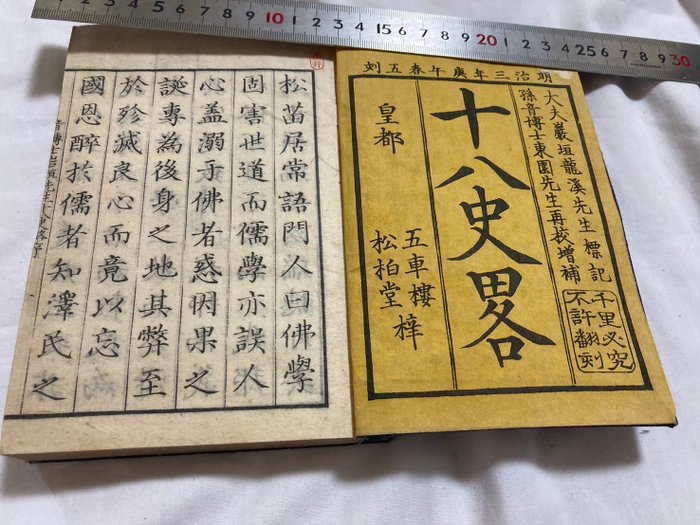 明治三年庚午春五刻
大夫巖垣龍溪先生 標記
孫音博士東園先生再校增補
千里必究
不許翻刻
十八史畧
皇都
五車樓
松柏堂
梓
松苗居常語門人曰佛學
固害世道而儒學亦誤人
心蓋溺于佛者惑因果之
誕專為後身之地其弊至
於殄滅良心而竟以忘
國恩醉於儒者知澤民之
5 6 7 8 9 10 1 2 3 4 15 6 7 8 9 20 1 2 3 4 25 6 7 8 9 30